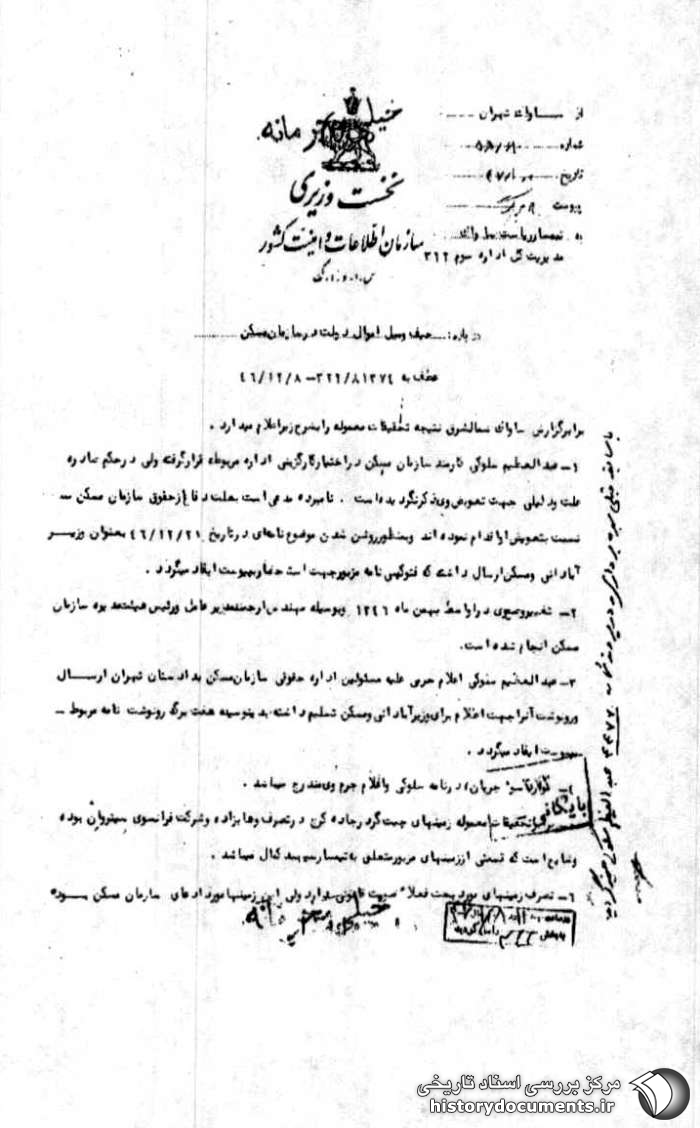 خیلی محرمانه
نخست وزیری
سازمان اطلاعات و امنیت کشور
س.ا.و.ا.ک
از ساواک تهران
شماره
تاریخ
پیوست ۸ برگ
به تیمسار ریاست ساواک
مدیریت کل اداره سوم ۳۲۲
درباره: حیف و میل اموال دولت در سازمان مسکن
عطف به ۳۲۲/۸۱۳۷۴ - ۴۶/۱۲/۸
برابر گزارش ساواک شمالشرق نتیجه تحقیقات معموله را بشرح زیر اعلام میدارد .
۱- عبدالعظیم سلوکی کارمند سازمان مسکن در اختیار کارگزینی اداره مربوطه قرار گرفته ولی در حکم صادره
علت و دلیلی جهت تعویض وی ذکر نگردیده است . نامبرده مدعی است بعلت دفاع از حقوق سازمان مسکن
نسبت بتعویض او اقدام نموده اند و بمنظور روشن شدن موضوع نامه‌ای در تاریخ ۴۶/۱۲/۲۱ بعنوان وزیر
آبادانی و مسکن ارسال داشته که فتوکپی نامه مزبور جهت استحضار بپیوست ایفاد میگردد .
۲- تغییر وضع وی در اواسط بهمن ماه ۱۳۴۶ و بوسیله مهندس ارجمند مدیر عامل و رئیس هیئت مدیره سازمان
مسکن انجام شده است.
۳- عبدالعظیم سلوکی اعلام جرمی علیه مسئولین اداره حقوقی سازمان مسکن بدادستان تهران ارسال
و رونوشت آنرا جهت اعلام برای وزیر آبادانی و مسکن تسلیم داشته بدینوسیله هفت برگ رونوشت نامه مربوط
بپیوست ایفاد میگردد .
۴- جریان در نامه سلوکی و اعلام جرم وی مندرج میباشد .
بایگانی
تحقیقات معموله زمینهای چیت گر در جاده کرج در تصرف وهابزاده و شرکت فرانسوی بوده
و شایع است که قسمتی از زمینهای مزبور متعلق به تیمسار سپهبد کمال میباشد .
۶- تصرف زمینهای مورد بحث فعلا صورت قانونی ندارد ولی این زمینها مورد ادعای سازمان مسکن بوده
خیلی محرمانه
مرکز بررسی اسناد تاریخی
historydocuments.ir